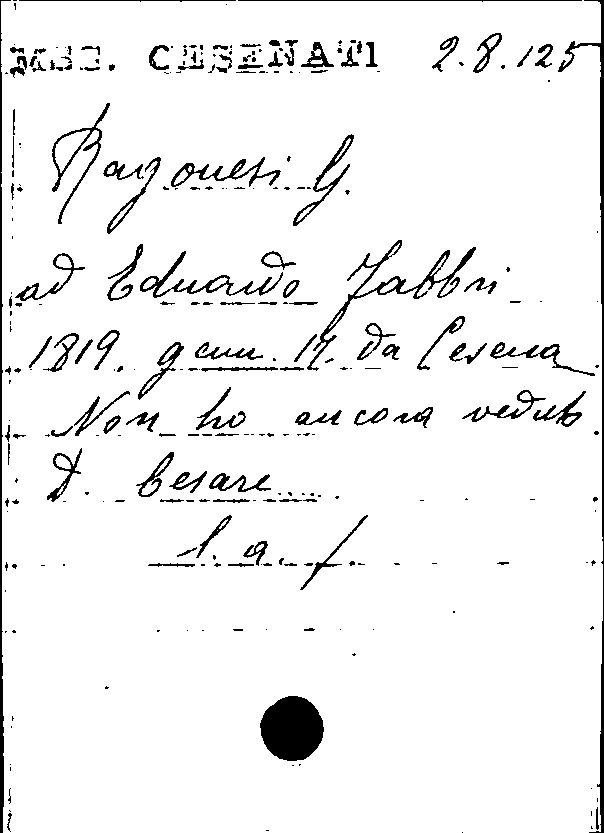 MSS. CESENATI 2.8.125
Ragonesi G.
ad Eduardo Fabbri
1819. genn. 17. da Cesena
Non ho ancora veduto
D. Cesare...
l. a. f.